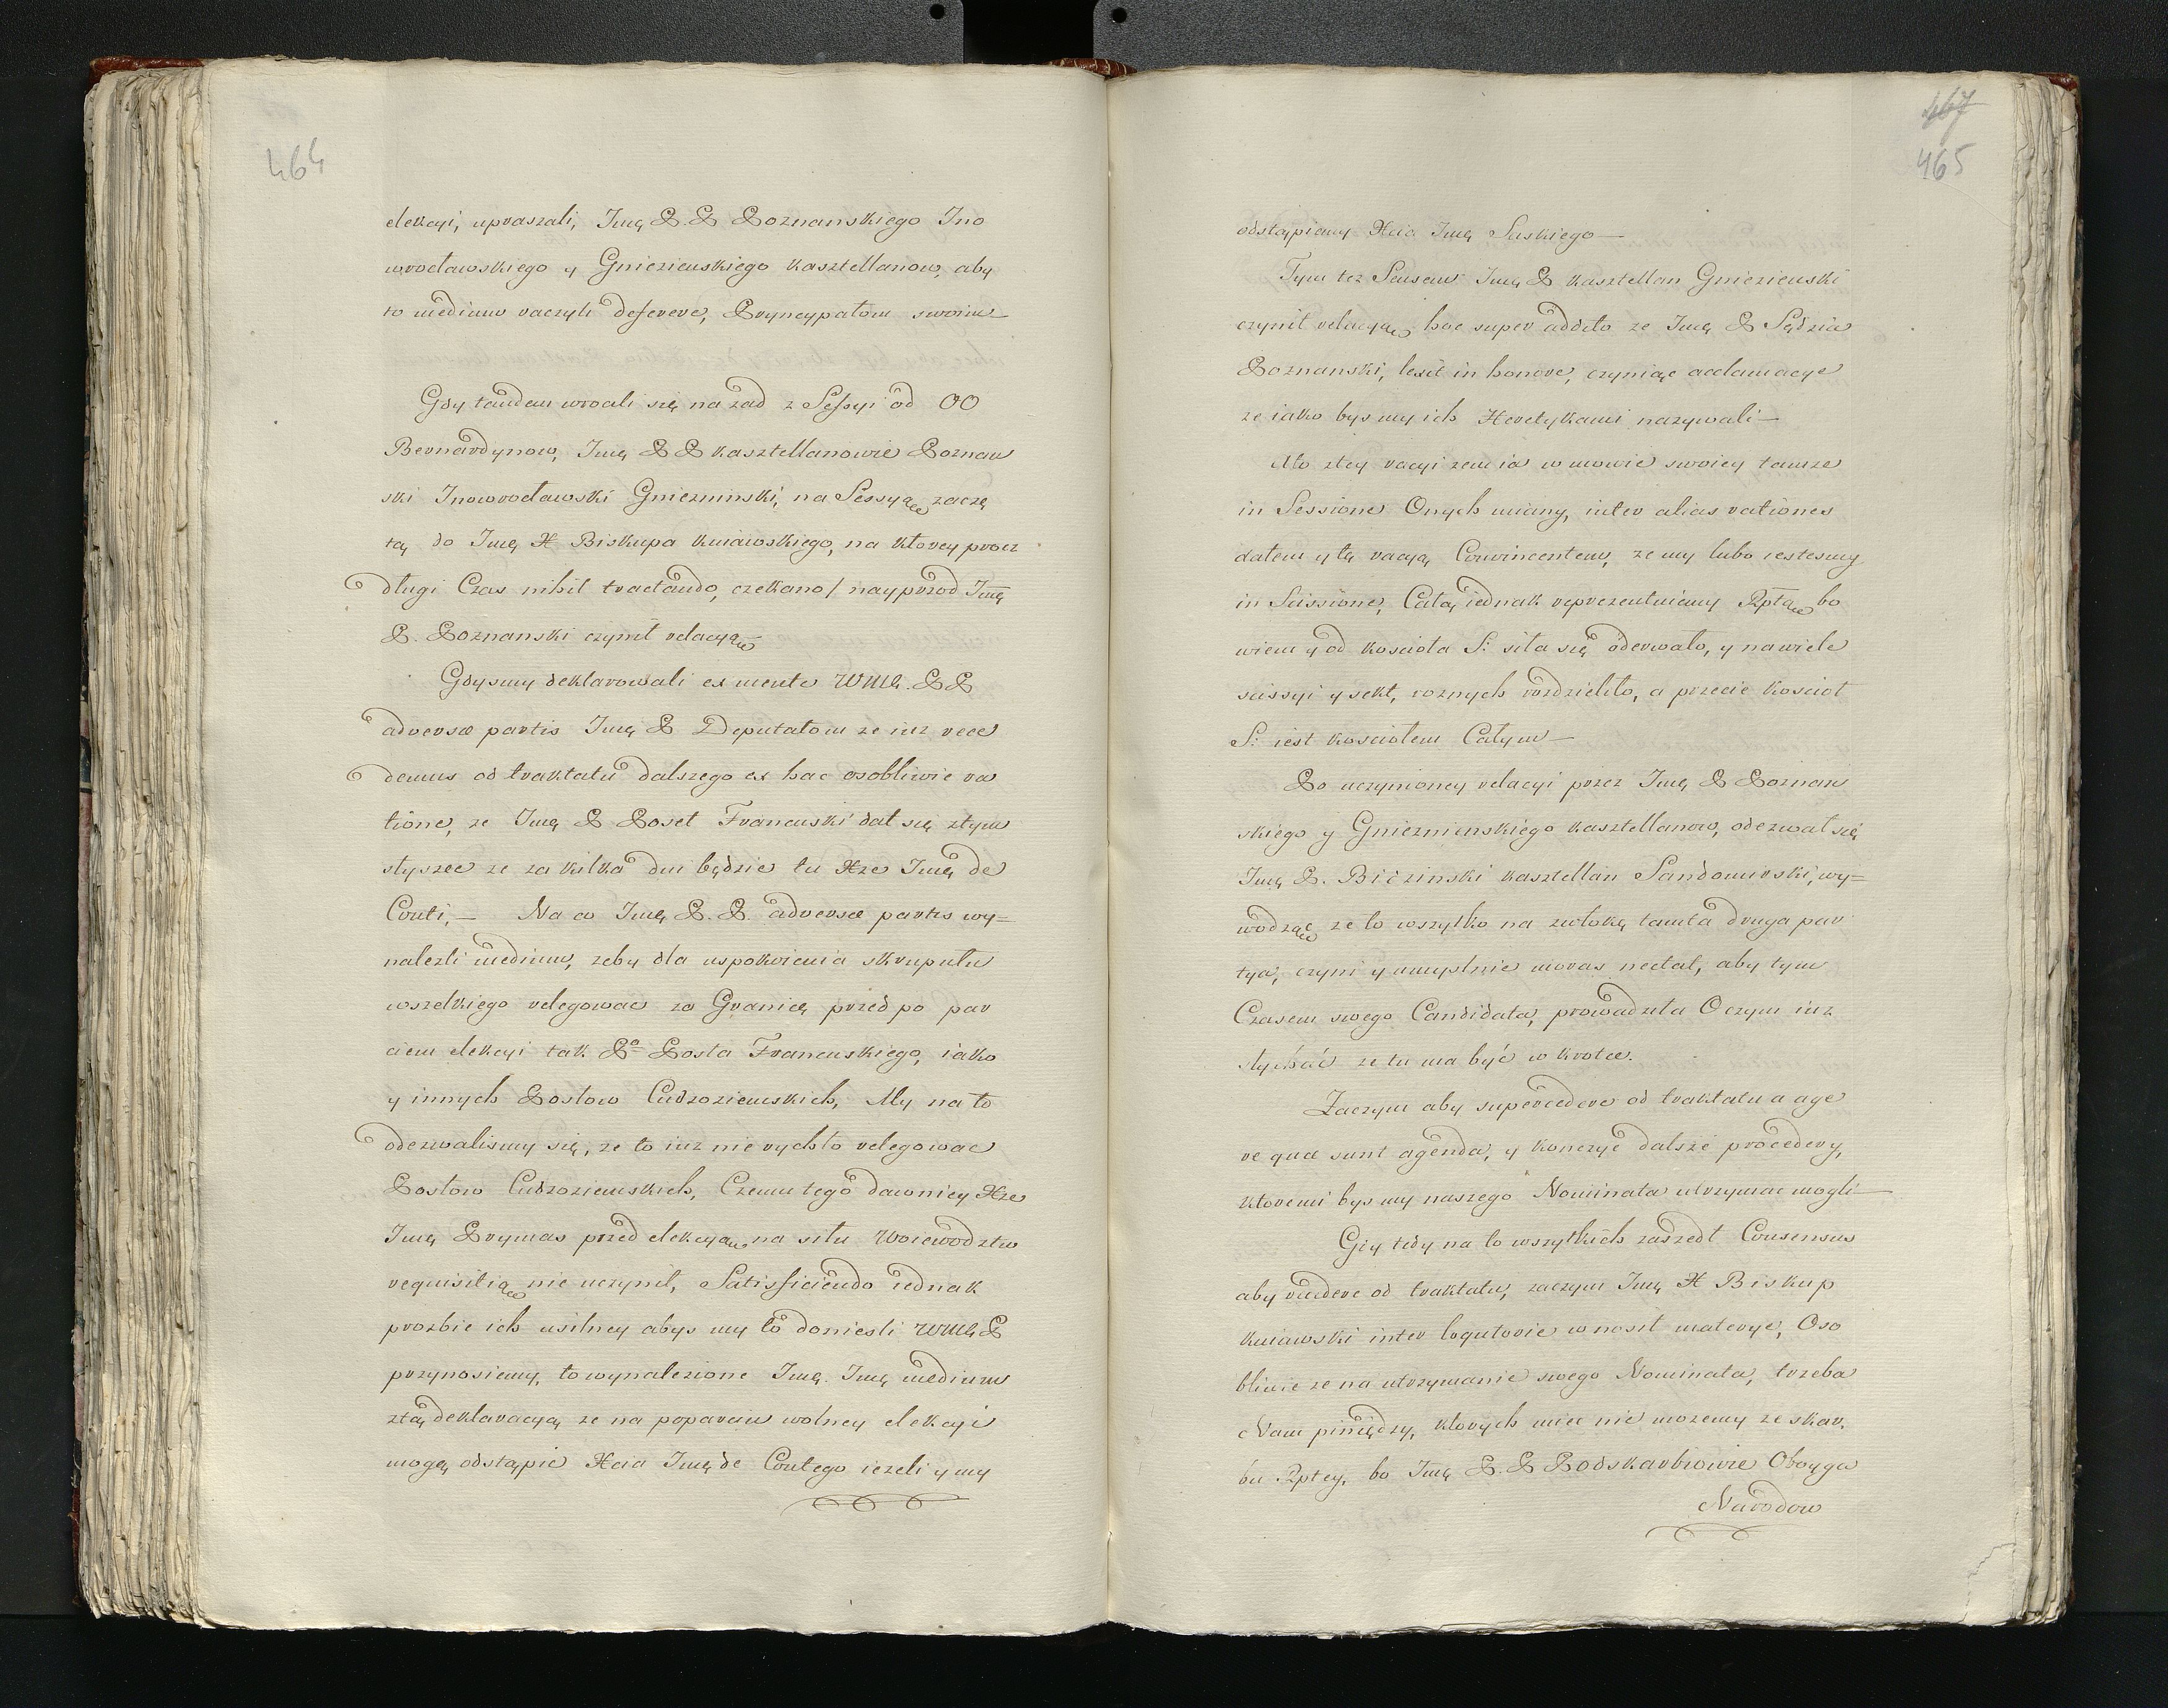 464
elekcyi, upraszali, Jmę P. P. Poznanskiego Ino
wrocławskiego y Gnieznieuskiego kasztellanow, aby
to medium raczyli deferere, Pryncypałom swoim
Gdy tandem wrocali się na zad z Sessyi od OO
Bernardynow, Jmę P P kasztellanowie Poznan
ski Inowrocławski Gniezninski, na Sessyą zaczę
tą do Jmę X Biskupa kuiawskiego, na ktorey przez
długi Czas nihil tractando, czekano / nayprzod Jmę
P. Poznanski czynił relacyą
Gdysmy deklarowali ex mente WMę. P P
adversæ partis Jmę P Deputatom ze iuz rece
demus od traktatu dalszego ex hac osobliwie ra
tione, ze Jmę P Poseł Francuski dał się ztym
słyszec ze za kilka dni będzie tu Xze Jmę de
Conti, — Na co Jmę P. P. adversæ partis wy=
nalezli medium, zeby dla uspokoienia skrupułu
wszelkiego relegowac za Granicę przed po par
ciem elekcyi tak Pa Posła Francuskiego, iako
y innych Posłow Cudzoziemskich, My na to
odezwalismy się, ze to iuz nie rychło relegowac
Posłow Cudzoziemskich, Czemu tego dawniey Xze
Jmę Prymas przed elekcyą na siłu Woiewodztw
requisitią nie uczynił, Satisficiendo iednak
prozbie ich usilney abys my to doniesli WMę P
przynosiemy, to wynalezione Jmę. Jmę medium
ztą deklaracyą ze na poparciu wolney elekcyi
mogą odstąpic Xcia Jmę de Contego iezeli y my
467
465
odstąpiemy Xcia Jmę Saskiego —
Tym tez Sensem Jmę P kasztellan Gnieznieuski
czynił relacyą hoc super addito ze Jmę P Sędzia
Poznanski, lesit in honore, czyniąc acclamacye
ze iako bys my ich Heretykami nazywali —
Ato ztey racyi zem ia w mowie swoiey tamze
in Sessione Onych miany, inter alias rationes
dałem y tę racyą Convincentem, ze my lubo iestesmy
in Scissione, Całą iednak reprezentuiemy Rptą bo
wiem y od koscioła S: siła się oderwało, y na wiele
scissyi y sekt, roznych rozdzieliło, a przecie koscioł
S: iest kosciołem Całym —
Po uczynioney relacyi przez Jmę P Poznan
skiego y Gnieznieuskiego kasztellanow, odezwał się
Jmę P. Bidzinski kasztellan Sandomirski, wy=
wodząc ze to wszytko na zwłokę tamta druga par
tya, czyni y umyslnie moras nectat, aby tym
Czasem swego Candidata, prowadziła Oczym iuz
słychać ze tu ma być w krotce.
Zaczym aby supercedere od traktatu a age
re quæ sunt agenda, y konczyć dalsze procedery,
ktoremi bys my naszego Nominata utrzymac mogli —
Gdy tedy na to wszytkich zaszedł Consensus
aby recedere od traktatu, zaczym Jmę X Biskup
kuiawski inter loqutorie wnosił materye, Oso
bliwie ze na utrzymanie swego Nominata, trzeba
Nam pieniędzy, ktorych miec nie mozemy ze skar,
bu Rptey, bo Jmę P. P Podskarbiowie Oboyga
Narodow